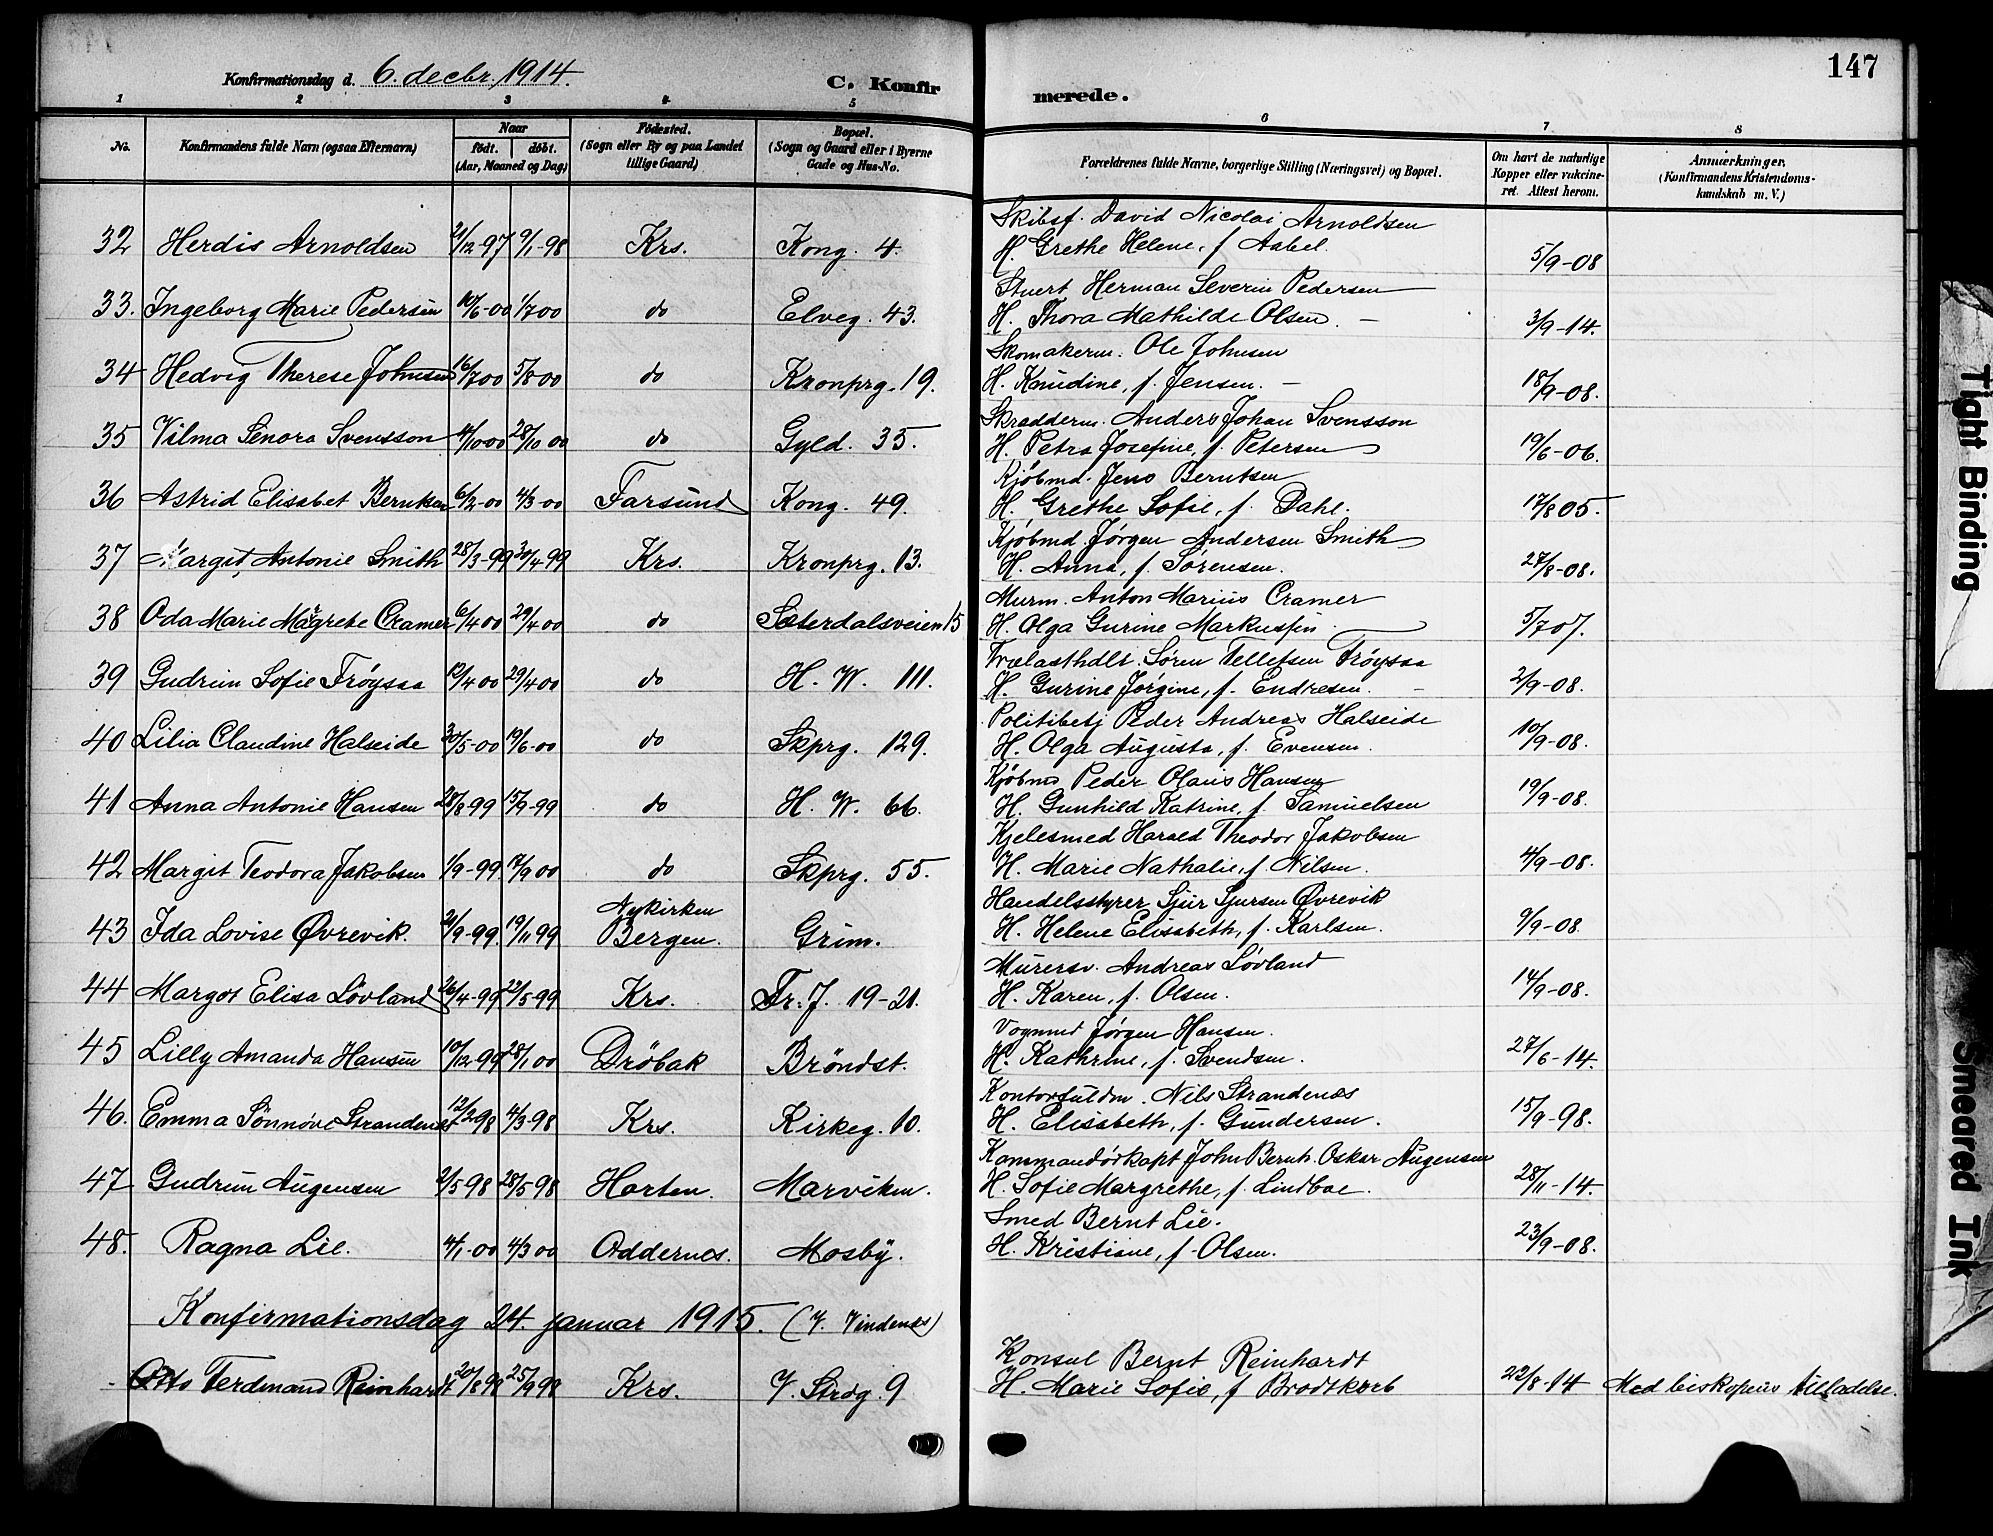 147
Konfirmationsdag d. 6. decbr. 1914.
C. Konfirmerede.
1 2 3 4 5 6 7 8
No.
Konfirmandens fulde Navn (ogsaa Efternavn)
Naar
født. døbt.
(Aar, Maaned og Dag)
Fødested.
(Sogn eller By og paa Landet
tillige Gaard)
Bopæl.
(Sogn og Gaard eller i Byerne
Gade og Hus-No.
Forældrenes fulde Navne, borgerlige Stilling (Næringsvei) og Bopæl.
Om havt de naturlige
Kopper eller vakcine-
ret. Attest herom.
Anmærkninger.
(Konfirmandens Kristendoms-
kundskab m. V.)
Skibsf. David Nicolai Arnoldsen
32 Herdis Arnoldsen 21/12-97 9/1-98 Krs. Kong. 4. H. Grethe Helene, f. Aabel. 5/9-08
Stuert Herman Severin Pedersen
33. Ingeborg Marie Pedersen 10/6-00 1/7 00 do Elveg. 43. H. Thora Mathilde Olsen. 3/9-14.
Skomakerm. Ole Johnsen
34 Hedvig Therese Johnsen 16/7 00 5/8 00 do Kronprg. 19. H. Knudine, f. Jensen. 18/9-08.
Skrædderm. Anders Johan Svensson
35 Vilma Senora Svensson 4/10 00 28/10 00 do Gyld. 35. H. Petra Josefine, f. Petersen 19/6-06.
Kjøbmd. Jens Berntsen
36 Astrid Elisabet Berntsen 6/2-00 4/3-00 Farsund Kong. 49. H. Grethe Sofie, f. Dahl. 17/8 05.
Kjøbmd. Jørgen Andersen Smith
37 Margit Antonie Smith 28/3-99 30/4-99 Krs. Kronprg. 13. H. Anna, f. Sørensen. 27/8-08.
Murm. Anton Marius Cramer
38 Oda Marie Margrete Cramer 6/4 00 29/4 00 do Sæterdalsveien 15 H. Olga Gurine Markussen 5/7 07.
Trælasthdlr. Søren Tellefsen Frøysaa
39 Gudrun Sofie Frøysaa 12/4 00 29/4 00 do H. W. 111. H. Gurine Jørgine, f. Endresen. 2/9-08.
Politibetj Peder Andreas Halseide
40 Lilia Claudine Halseide 30/5-00 19/6-00 do Skprg. 129. H. Olga Augusta, f. Evensen. 10/9-08.
Kjøbmd Peder Olaus Hansen
41 Anna Antonie Hansen 28/8 99 15/9-99 do H. W. 66. H. Gunhild Katrine, f. Samuelsen 19/9-08.
Kjelesmed Harald Theodor Jakobsen
42 Margit Teodora Jakobsen 1/9-99. 17/9 00 do Skprg. 55. H. Marie Nathalie, f. Nilsen. 4/9-08.
Nykirken Handelsstyrer Sjur Sjursen Øvrevik
43 Ida Lovise Øvrevik. 21/9-99. 19/11 99 Bergen. Grim. H. Helene Elisabeth, f. Karlsen. 9/9-08
Murersv. Andreas Løvland
44 Margot Elisa Løvland 26/4-99 22/5-99 Krs. Fr. J. 19-21. H. Karen, f. Olsen. 14/9-08.
Vognmd Jørgen Hansen.
45 Lilly Amanda Hansen 10/12-99 28/1 00 Drøbak Brøndst. H. Kathrine, f. Svendsen. 27/6-14.
Kontorfuldm. Nils Strandenæs
46. Emma Sønnøve Strandenæs 12/2 98 4/3-98 Krs. Kirkeg. 10. H. Elisabeth, f. Gundersen. 15/9-98.
Kommandørkapt John Bernh. Oskar Augensen
47 Gudrun Augensen 2/5 98 28/5 98 Horten. Marviken. H. Sofie Margrethe, f. Lindboe. 28/11-14.
Smed Bernt Lie.
48. Ragna Lie. 4/1-00 4/3 00 Oddernes. Mosby. H. Kristiane, f. Olsen. 23/9-08.
Konfirmationsdag 24. januar 1915. (J. Vindenes)
Konsul Bernt Reinhardt
Otto Ferdinand Reinhardt 20/8 98 25/9 98 Krs. V. Strdg. 9 H. Marie Sofie, f Brodtkorb 22/8-14 Med biskopens tilladelse.
Tight Binding
Smeared Ink